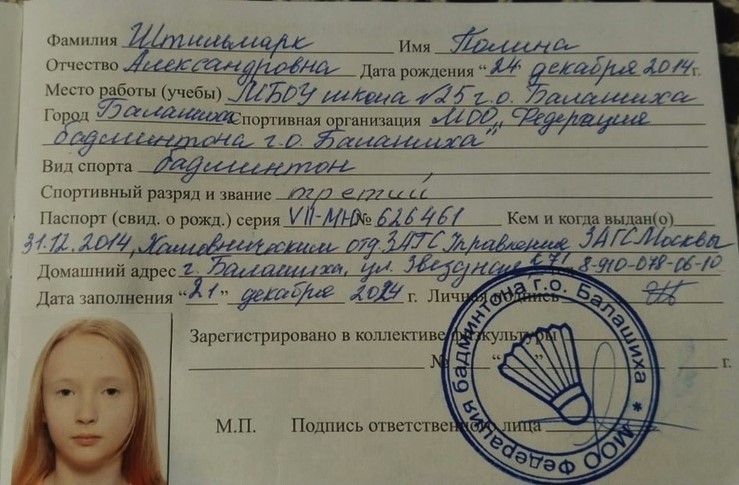 Фамилия Штильмарк Имя Полина
Отчество Александровна Дата рождения "24 декабря 2014г.
Место работы (учебы) МБОУ школа №25 г.о. Балашиха
Город Балашиха Спортивная организация МОО „Федерация
бадминтона г.о. Балашиха"
Вид спорта бадминтон
Спортивный разряд и звание третий
Паспорт (свид. о рожд.) серия VII-МЮ № 626461 Кем и когда выдан(о)
31.12.2014, Хамовническим отд. ЗАГС Управления ЗАГС Москвы
Домашний адрес г. Балашиха, ул. Звёздная 8-910-078-06-10
Дата заполнения "21" декабря 2024 г. Личная подпись
Зарегистрировано в коллективе физкультуры
№ " " г.
М.П. Подпись ответственного лица
МОО Федерация бадминтона г.о. Балашиха *